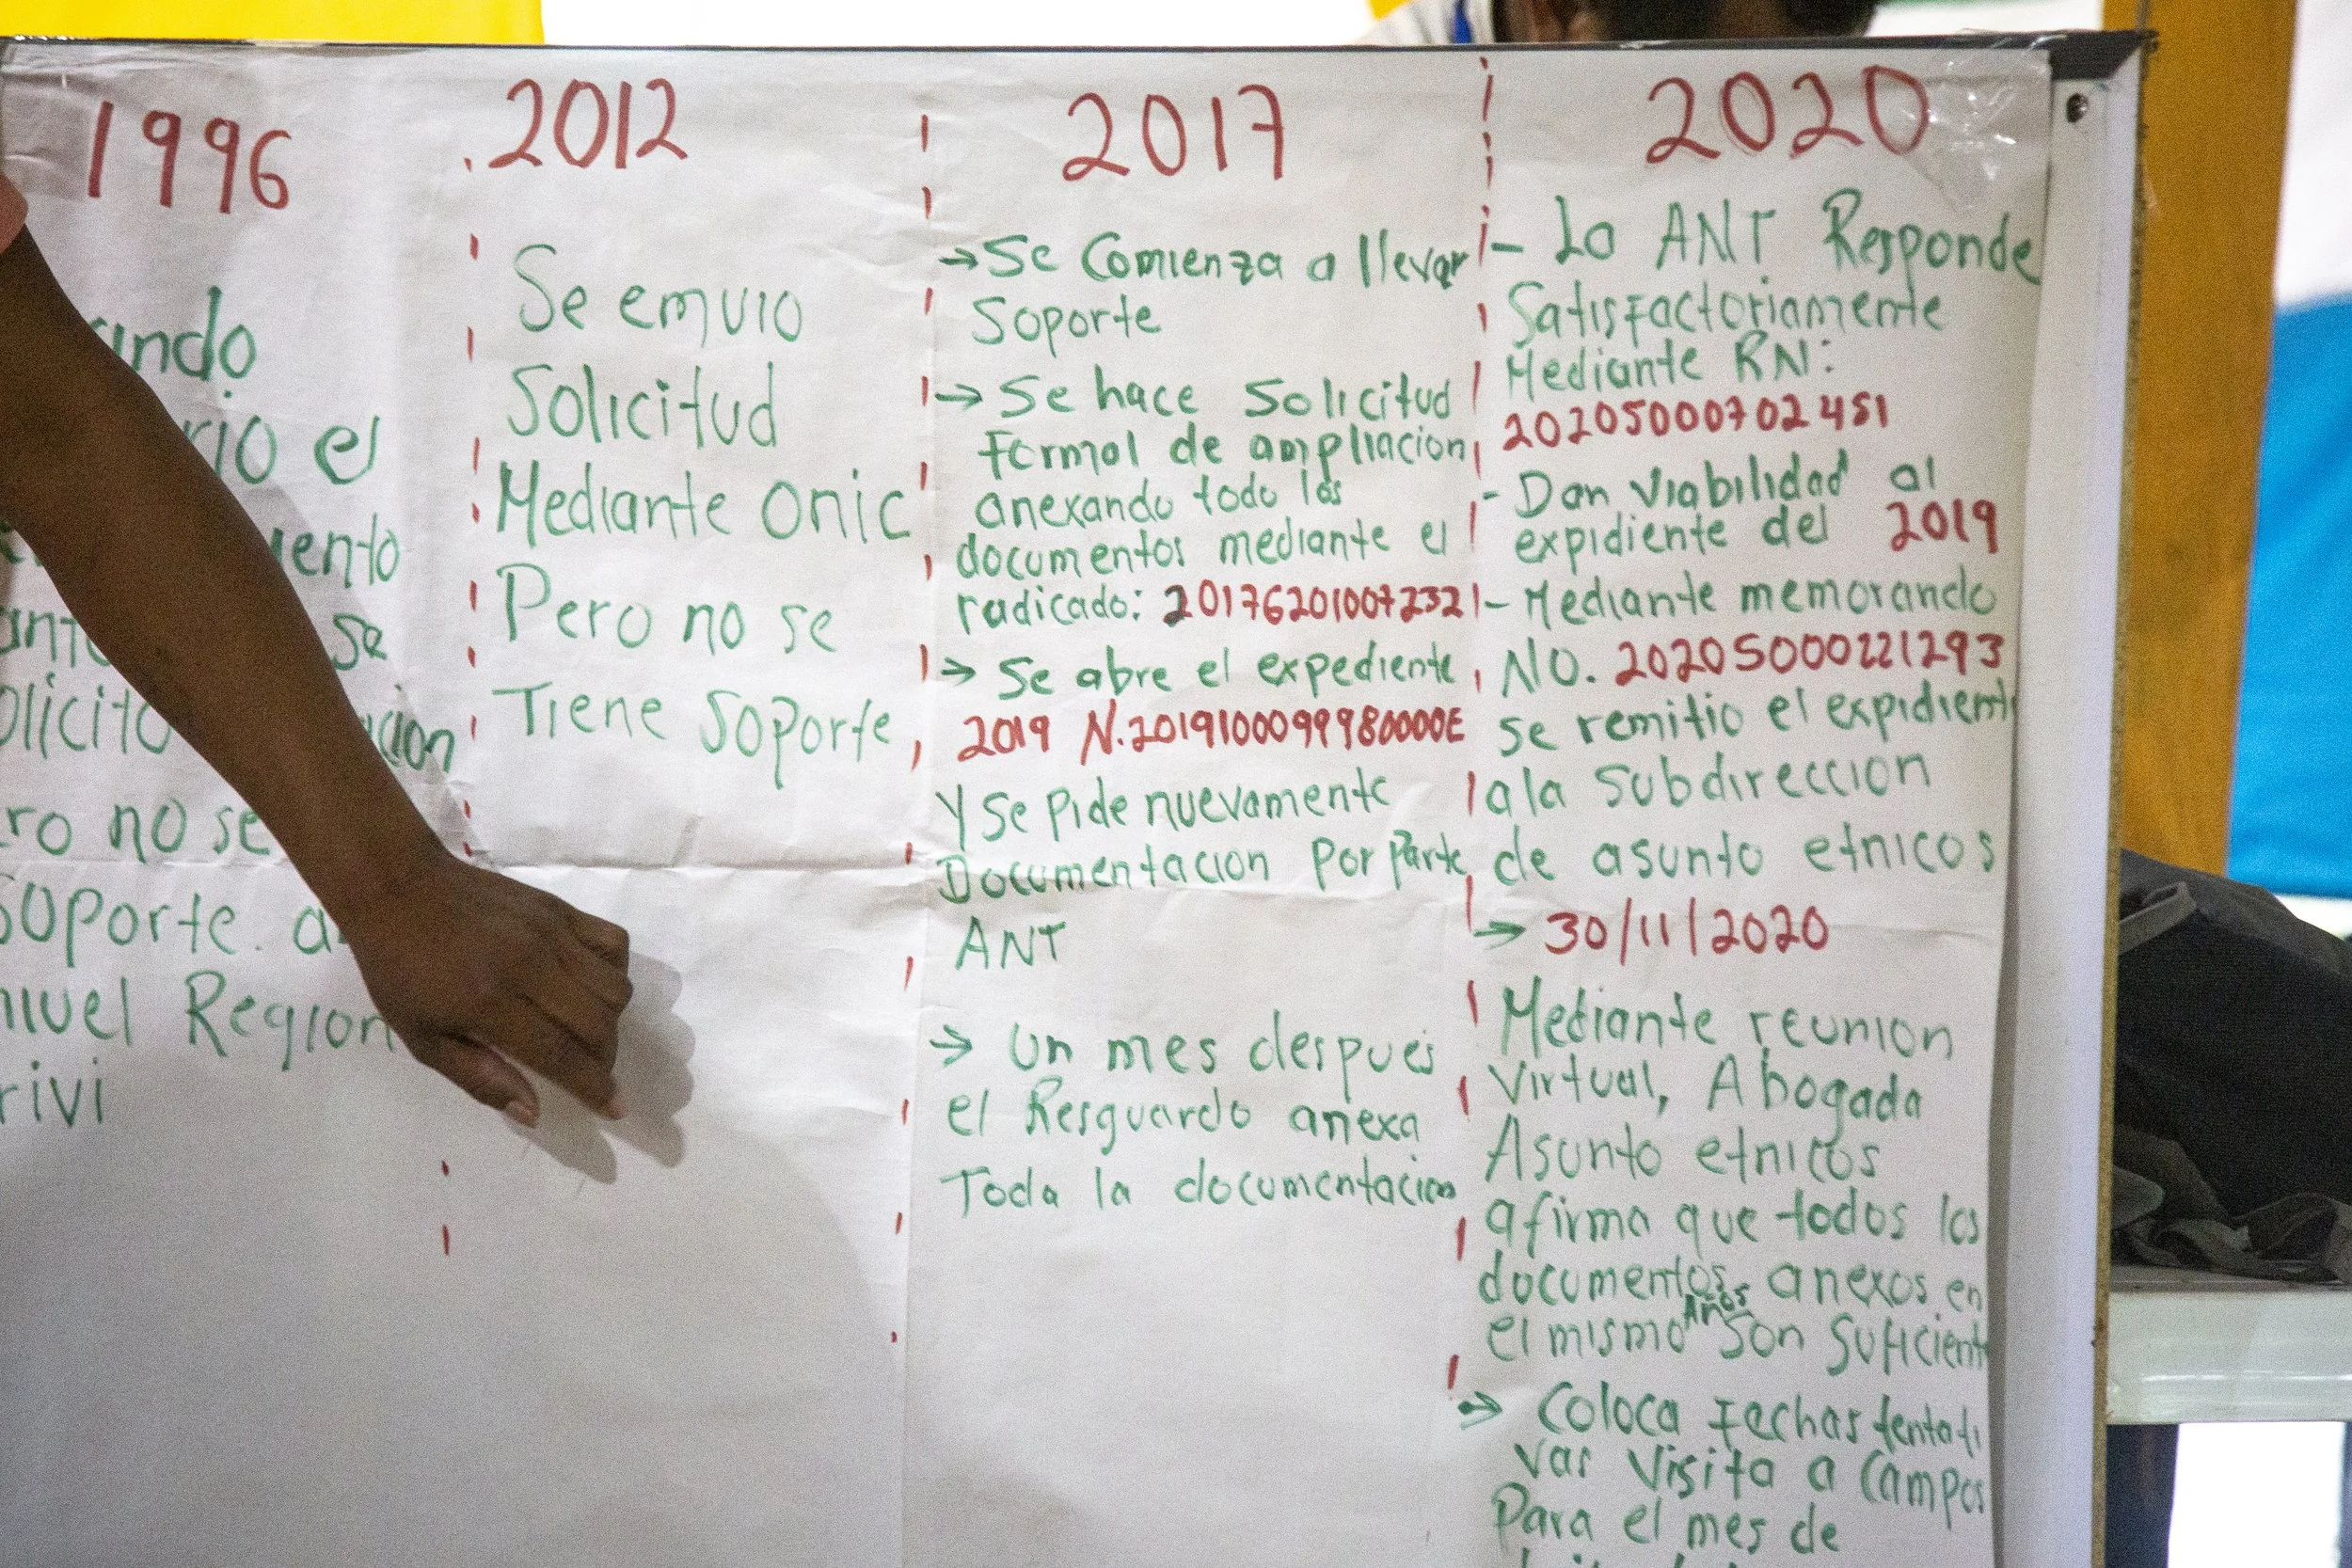 1996
ando
rio el
iento
se
olicito
cion
ro no se
Soporte. a
nivel Region
rivi
2012
Se emvio
Solicitud
Mediante onic
Pero no se
Tiene Soporte
2017
→ Se Comienza a llevar
Soporte
→ Se hace Solicitud
Formal de ampliacion
anexando todo los
documentos mediante el
radicado: 201762010072321
→ Se abre el expediente
2019 N.2019100099980000E
Y Se Pide nuevamente
Documentacion Por Parte
ANT
→ Un mes despues
el Resguardo anexa
Toda la documentacion
2020
- La ANT Responde
Satisfactoriamente
Mediante RN:
20205000702451
- Dan Viabilidad al
expidiente del 2019
- Mediante memorando
NO. 20205000221293
se remitio el expidient
a la Subdireccion
de asunto etnicos
→ 30/11/2020
Mediante reunion
Virtual, Abogada
Asunto etnicos
afirma que todos los
documentos anexos en
el mismo Años Son Suficient
→ Coloca Fechas tentati
vas Visita a Campos
Para el mes de